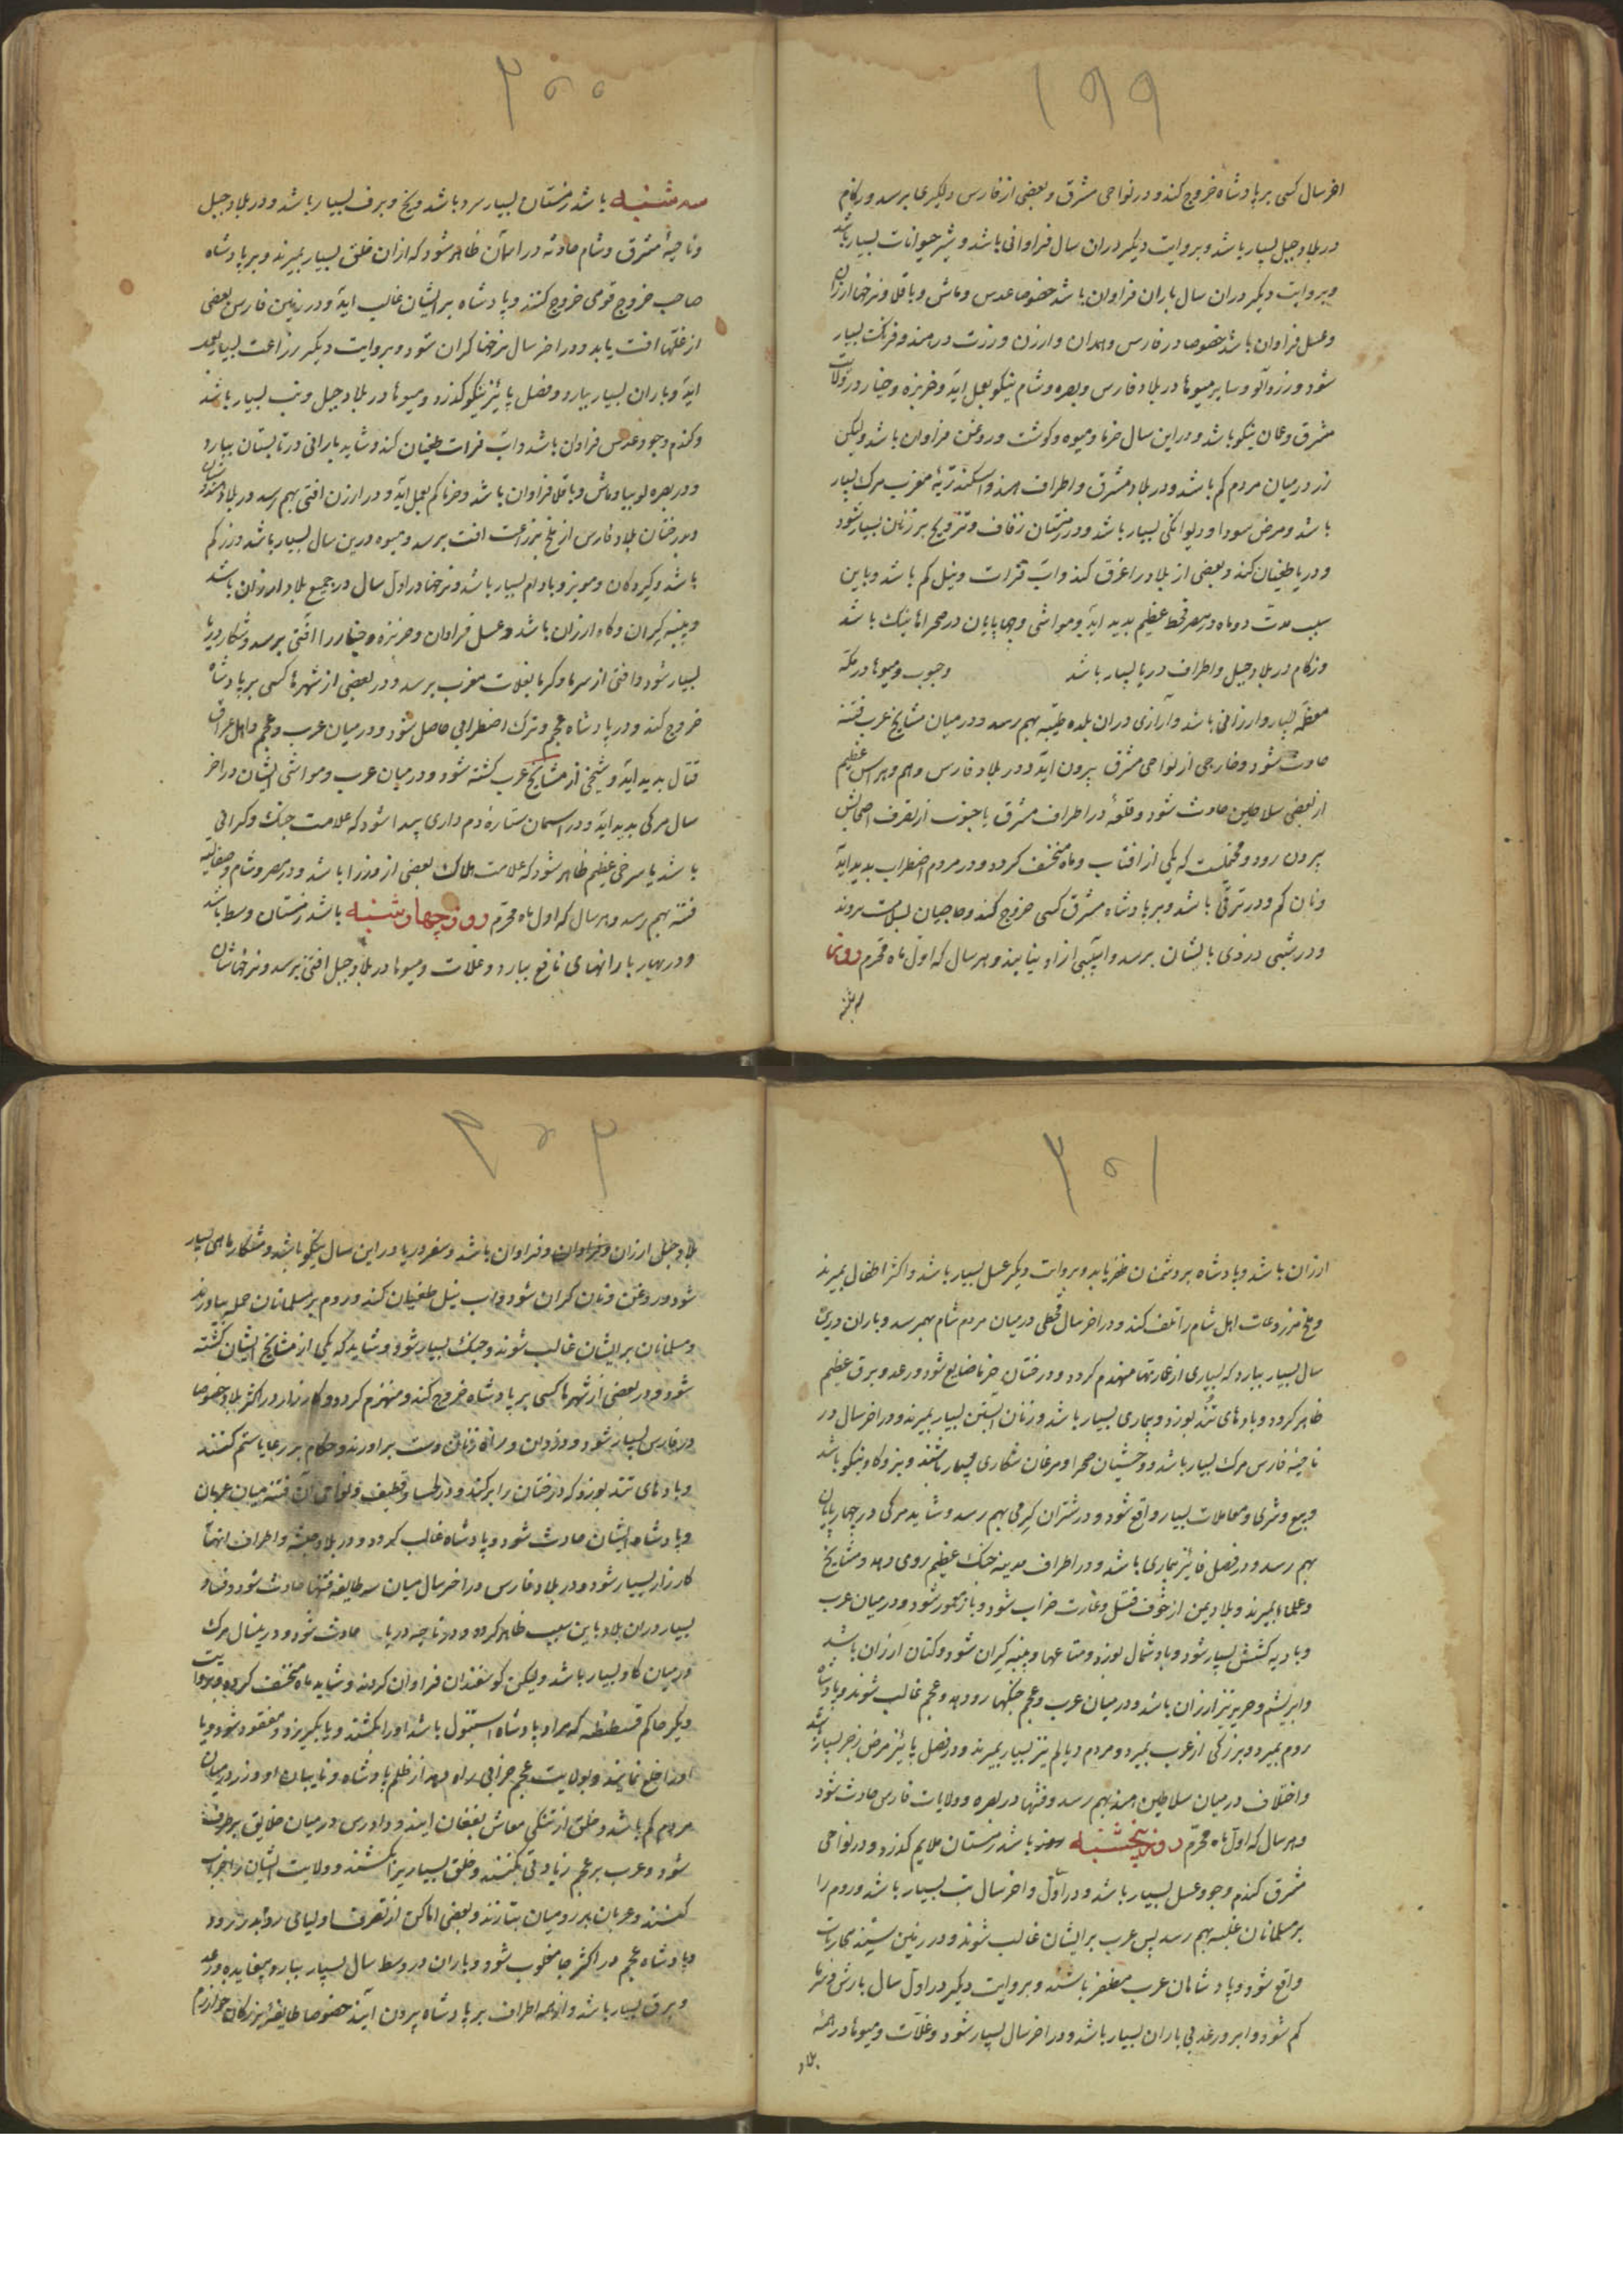 ۱۹۹
اخر سال کسی بر پادشاه خروج کند و در نواحی مشرق و بعضی از فارس دیگر عا برسد و زکام
در بلاد جبل بسیار باشد و بروایت دیکر دران سال فراوانی باشد و شیر حیوانات بسیار باشد
و بروایت دیکر دران سال باران فراوان باشد خصوصا عدس و ماش و باقلا و نرخها ارزان
و عسل فراوان باشد خصوصا در فارس و همدان و ارزن و زرت در هند و فرنک بسیار
شود و زردآلو و سایر میوها در بلاد فارس و بصره و شام نیکو بعمل اید و خربزه و خیار در ولایت
مشرق و عمان نیکو باشد و در این سال خرما و میوه و کوشت و روغن فراوان باشد ولیکن
زر در میان مردم کم باشد و در بلاد مشرق و اطراف هند و اسکندریه مغرب مرک بسیار
باشد و مرض سودا و دیوانکی بسیار باشد و در زمستان زفاف و تزویج بر زنان بسیار شود
و دریا طغیان کند و بعضی از بلاد را غرق کند و اب فرات و نیل کم باشد و باین
سبب مدت دو ماه در مصر قحط عظیم پدید اید و مواشی و چهارپایان در صحراها نیک باشد
و زکام در بلاد جبل و اطراف دریا بسیار باشد و حبوب و میوها در مکه
معظمه بسیار و ارزانی باشد و آزاری دران بلده طیبه بهم رسد و در میان مشایخ عرب فتنه
حادث شود و خارجی از نواحی مشرق بیرون اید و در بلاد فارس وهم و هراس عظیم
از بعضی سلاطین حادث شود و قلعه در اطراف مشرق یا جنوب از تصرف اصحابش
بیرون رود و محتملست که یکی از افتاب و ماه منخسف کردد و در مردم اضطراب پدید اید
و نان کم و در ترقی باشد و بر پادشاه مشرق کسی خروج کند و حاجیان بسلامت بروند
و در شبی دزدی بایشان برسد و اسیبی از او نیابند و هر سال که اول ماه محرم روز
سه شنبه
۲۰۰
سه شنبه باشد زمستان بسیار سرد باشد و یخ و برف بسیار باشد و در بلاد جبل
و ناحیه مشرق و شام حادثه در اسمان ظاهر شود که ازان خلق بسیار بمیرند و بر پادشاه
صاحب خروج قومی خروج کنند و پادشاه بر ایشان غالب اید و در زمین فارس بعضی
از غلها افت یابد و در اخر سال نرخها کران شود و بروایت دیکر زراعت بسیار بعمل
اید و باران بسیار ببارد و فصل پائیز نیکو کذرد و میوها در بلاد جبل و تب بسیار باشد
و کندم و جو و عدس فراوان باشد و اب فرات طغیان کند و شاید بارانی در تابستان ببارد
و در بصره لوبیا و ماش و باقلا فراوان باشد و خرما کم بعمل اید و در ارزن افتی بهم رسد در بلاد هندوستان
و درختان بلاد فارس از ملخ بزراعت افت برسد و میوه درین سال بسیار باشد و زر کم
باشد و کردکان و مویز و بادام بسیار باشد و نرخها در اول سال در جمیع بلاد ارزان باشد
و پنبه کران و کاه ارزان باشد و عسل فراوان و خربزه و خیار را افتی برسد و شکار دریا
بسیار شود و افتی از سرما و کرما بغلات مغرب برسد و در بعضی از شهرها کسی بر پادشاه
خروج کند و در پادشاه عجم و ترک اضطرابی حاصل شود و در میان عرب و عجم و اهل عراق
قتال پدید اید و شیخی از مشایخ عرب کشته شود و در میان عرب و مواشی ایشان در اخر
سال مرکی پدید اید و در اسمان ستاره دم داری پیدا شود که علامت جنک و کرانی
باشد یا سرخی عظیم ظاهر شود که علامت هلاک بعضی از وزرا باشد و در مصر و شام و صقالبه
فتنه بهم رسد و هر سال که اول ماه محرم روز چهارشنبه باشد زمستان وسط باشد
و در بهار بارانهای نافع ببارد و غلات و میوها در بلاد جبل افتی برسد و نرخهاشان
۲۰۱
ارزان باشد و پادشاه بر دشمنان ظفر یابد و بروایت دیکر عسل بسیار باشد و اکثر اطفال بمیرند
و ملخ مزروعات اهل شام را تلف کند و در اخر سال قحطی در میان مردم شام بهم رسد و باران درین
سال بسیار ببارد که بسیاری از عمارتها منهدم کردد و درختان خرما ضایع شود و رعد و برق عظیم
ظاهر کردد و بادهای تند بوزد و بیماری بسیار باشد و زنان ابستن بسیار بمیرند و در اخر سال در
ناحیه فارس مرک بسیار باشد و وحشیان صحرا و مرغان شکاری بیمار باشند و بز و کاو نیکو باشد
و بیع و شری و معاملات بسیار واقع شود و در شتران کرمی بهم رسد و شاید مرکی در چهارپایان
بهم رسد و در فصل فائیز بیماری باشد و در اطراف مدینه جنک عظیم روی دهد و مشایخ
و علما بمیرند و بلاد یمن از خوف قتل و غارت خراب شود و باز معمور شود و در میان عرب
و بادیه کشش بسیار شود و باد شمال بوزد و متاعها و پنبه کران شود و کتان ارزان باشد
و ابریشم و حریر نیز ارزان باشد و در میان عرب و عجم جنکها رو دهد و عجم غالب شوند و پادشاه
روم بمیرد و بزرکی از عرب بمیرد و مردم دیالم نیز بسیار بمیرند و در فصل پائیز مرض زحیر بسیار باشد
و اختلاف در میان سلاطین هند بهم رسد و فتنها در بصره و ولایات فارس حادث شود
و هر سال که اول ماه محرم روز پنجشنبه باشد زمستان ملایم کذرد و در نواحی
مشرق کندم و جو و عسل بسیار باشد و در اول و اخر سال تب بسیار باشد و روم را
بر مسلمانان غلبه بهم رسد پس عرب بر ایشان غالب شوند و در زمین سند محاربات
واقع شود و پادشاهان عرب مظفر باشند و بروایت دیکر در اول سال بارش و نهرها
کم شود و ابر و رعد بی باران بسیار باشد و در اخر سال بسیار شود و غلات و میوها در همه
بلاد
۲۰۲
بلاد جبل ارزان و فراوان و فراوان باشد و سفر دریا در این سال نیکو باشد و شکار ماهی بسیار
شود و روغن و نان کران شود و اب نیل طغیان کند و روم بر مسلمانان حمله بیاورند
و مسلمانان بر ایشان غالب شوند و جنک بسیار شود و شاید که یکی از مشایخ ایشان کشته
شود و در بعضی از شهرها کسی بر پادشاه خروج کند و منهزم کردد و کارزار در اکثر بلاد خصوصا
در فارس بسیار شود و دزدان و راه زنان دست براورند و حکام بر رعایا ستم کنند
و بادهای تند بوزد که درختان را برکند و در لحسا و قطیف و نواحی آن فتنه میان عربان
و پادشاه ایشان حادث شود و پادشاه غالب کردد و در بلاد حبشه و اطراف انها
کارزار بسیار شود و در بلاد فارس در اخر سال میان سه طایفه فتنها حادث شود و فساد
بسیار دران بلاد باین سبب ظاهر کردد و در ناحیه دریا حادث شود و درینسال مرک
در میان کاو بسیار باشد ولیکن کوسفندان فراوان کردند و شاید ماه منخسف کردد و بروایت
دیکر حاکم قسطنطنه که مراد پادشاه استنبول باشد اورا بکشند و یا بکریزد و مفقود شود و یا
اورا خلع نمایند و بولایت عجم خرابی راه یابد از ظلم پادشاه و نایبان او و زر در میان
مردم کم باشد و خلق از تنکی معاش بفغان ایند و دادرس در میان خلایق برطرف
شود و عرب بر عجم زیادتی بکنند و خلق بسیار برا بکشند و ولایت ایشان را خراب
کنند و عربان بر رومیان بتازند و بعضی اماکن از تصرف اولیای دولت بدر رود
و پادشاه عجم در اکثر جا مغلوب شود و باران در وسط سال بسیار ببارد و بیفایده و رعد
و برق بسیار باشد و از همه اطراف بر پادشاه بیرون آیند خصوصا طایفه بزرکان خوارزم